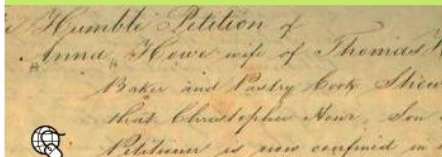 Humble Petition of
Anna Howe wife of Thomas
Baker and Pastry Cook Shew
that Christopher Howe, Son
Petitioner is now confined in